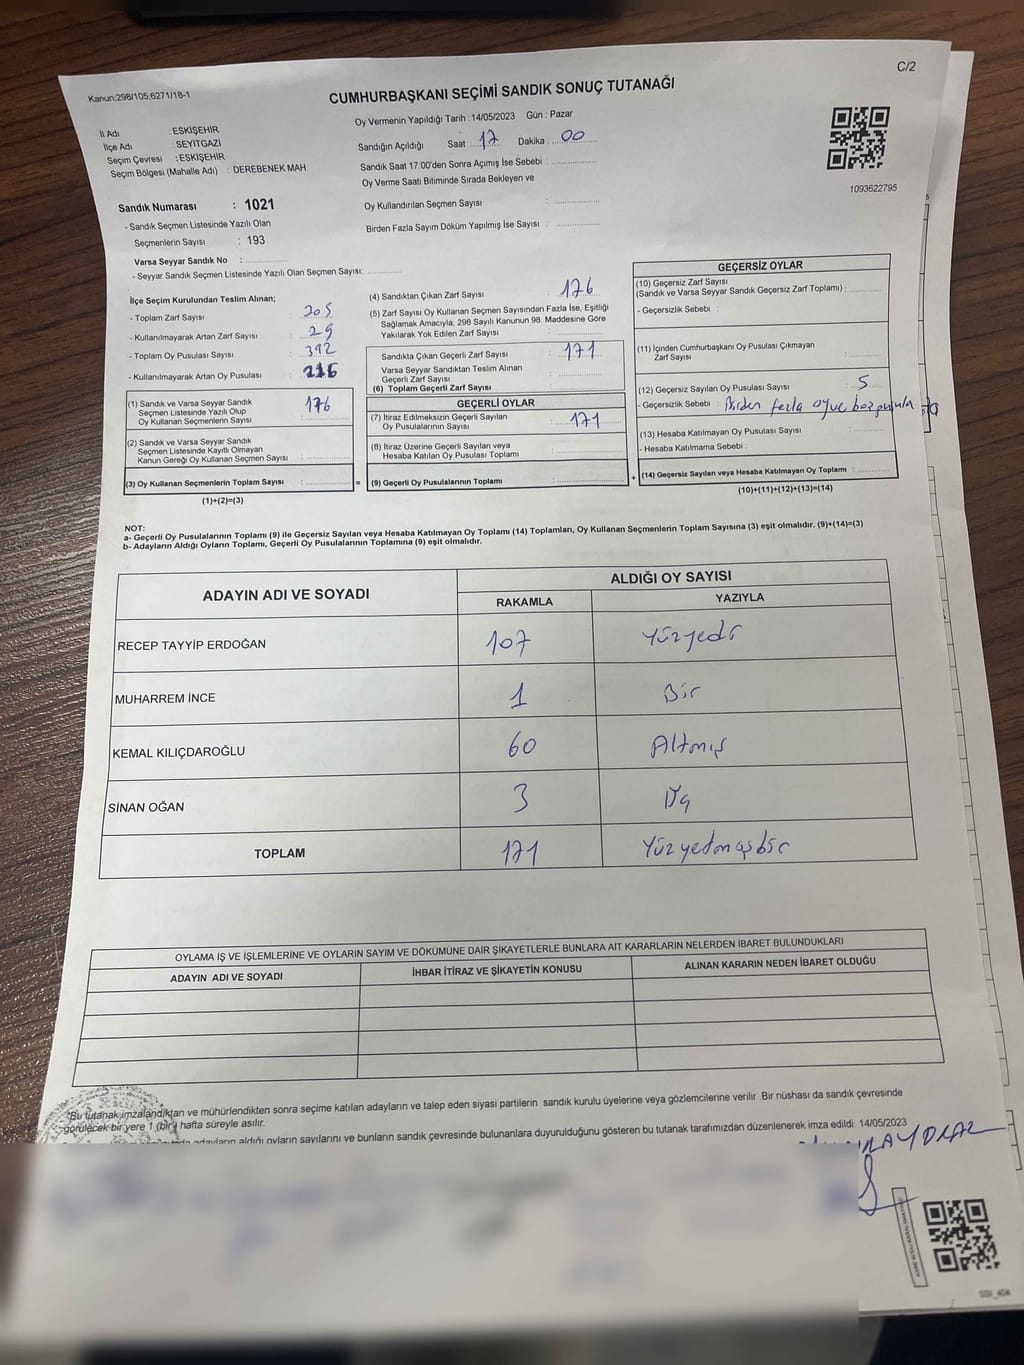 Kanun:298/105,6271/18-1
C/2
CUMHURBAŞKANI SEÇİMİ SANDIK SONUÇ TUTANAĞI
İl Adı : ESKİŞEHİR
İlçe Adı : SEYİTGAZİ
Seçim Çevresi : ESKİŞEHİR
Seçim Bölgesi (Mahalle Adı) : DEREBENEK MAH
Oy Vermenin Yapıldığı Tarih : 14/05/2023 Gün : Pazar
Sandığın Açıldığı Saat : 17 Dakika : 00
Sandık Saat 17:00'den Sonra Açımış İse Sebebi :
Oy Verme Saati Bitiminde Sırada Bekleyen ve
Oy Kullandırılan Seçmen Sayısı :
Birden Fazla Sayım Döküm Yapılmış İse Sayısı :
1093622795
Sandık Numarası : 1021
- Sandık Seçmen Listesinde Yazılı Olan
Seçmenlerin Sayısı : 193
Varsa Seyyar Sandık No :
- Seyyar Sandık Seçmen Listesinde Yazılı Olan Seçmen Sayısı:
İlçe Seçim Kurulundan Teslim Alınan;
- Toplam Zarf Sayısı : 205
- Kullanılmayarak Artan Zarf Sayısı : 29
- Toplam Oy Pusulası Sayısı : 392
- Kullanılmayarak Artan Oy Pusulası : 216
(1) Sandık ve Varsa Seyyar Sandık
Seçmen Listesinde Yazılı Olup
Oy Kullanan Seçmenlerin Sayısı : 176
(2) Sandık ve Varsa Seyyar Sandık
Seçmen Listesinde Kayıtlı Olmayan
Kanun Gereği Oy Kullanan Seçmen Sayısı :
(3) Oy Kullanan Seçmenlerin Toplam Sayısı : =
(1)+(2)=(3)
(4) Sandıktan Çıkan Zarf Sayısı : 176
(5) Zarf Sayısı Oy Kullanan Seçmen Sayısından Fazla İse, Eşitliği
Sağlamak Amacıyla, 298 Sayılı Kanunun 98. Maddesine Göre
Yakılarak Yok Edilen Zarf Sayısı :
Sandıkta Çıkan Geçerli Zarf Sayısı : 171
Varsa Seyyar Sandıktan Teslim Alınan
Geçerli Zarf Sayısı :
(6) Toplam Geçerli Zarf Sayısı :
GEÇERLİ OYLAR
(7) İtiraz Edilmeksizin Geçerli Sayılan
Oy Pusulalarının Sayısı : 171
(8) İtiraz Üzerine Geçerli Sayılan veya
Hesaba Katılan Oy Pusulası Toplamı :
(9) Geçerli Oy Pusulalarının Toplamı : +
GEÇERSİZ OYLAR
(10) Geçersiz Zarf Sayısı
(Sandık ve Varsa Seyyar Sandık Geçersiz Zarf Toplamı) :
- Geçersizlik Sebebi :
(11) İçinden Cumhurbaşkanı Oy Pusulası Çıkmayan
Zarf Sayısı :
(12) Geçersiz Sayılan Oy Pusulası Sayısı : 5
- Geçersizlik Sebebi : Birden fazla oy ve boz pusula
(13) Hesaba Katılmayan Oy Pusulası Sayısı :
- Hesaba Katılmama Sebebi :
(14) Geçersiz Sayılan veya Hesaba Katılmayan Oy Toplamı :
(10)+(11)+(12)+(13)=(14)
NOT:
a- Geçerli Oy Pusulalarının Toplamı (9) ile Geçersiz Sayılan veya Hesaba Katılmayan Oy Toplamı (14) Toplamları, Oy Kullanan Seçmenlerin Toplam Sayısına (3) eşit olmalıdır. (9)+(14)=(3)
b- Adayların Aldığı Oyların Toplamı, Geçerli Oy Pusulalarının Toplamına (9) eşit olmalıdır.
ADAYIN ADI VE SOYADI
ALDIĞI OY SAYISI
RAKAMLA YAZIYLA
RECEP TAYYİP ERDOĞAN 107 Yüzyedi
MUHARREM İNCE 1 Bir
KEMAL KILIÇDAROĞLU 60 Altmış
SİNAN OĞAN 3 Üç
TOPLAM 171 Yüzyetmişbir
OYLAMA İŞ VE İŞLEMLERİNE VE OYLARIN SAYIM VE DÖKÜMÜNE DAİR ŞİKAYETLERLE BUNLARA AİT KARARLARIN NELERDEN İBARET BULUNDUKLARI
ADAYIN ADI VE SOYADI İHBAR İTİRAZ VE ŞİKAYETİN KONUSU ALINAN KARARIN NEDEN İBARET OLDUĞU
*Bu tutanak imzalandıktan ve mühürlendikten sonra seçime katılan adayların ve talep eden siyasi partilerin sandık kurulu üyelerine veya gözlemcilerine verilir. Bir nüshası da sandık çevresinde
görülecek bir yere 1 (bir) hafta süreyle asılır.
adayların aldığı oyların sayılarını ve bunların sandık çevresinde bulunanlara duyurulduğunu gösteren bu tutanak tarafımızdan düzenlenerek imza edildi. 14/05/2023